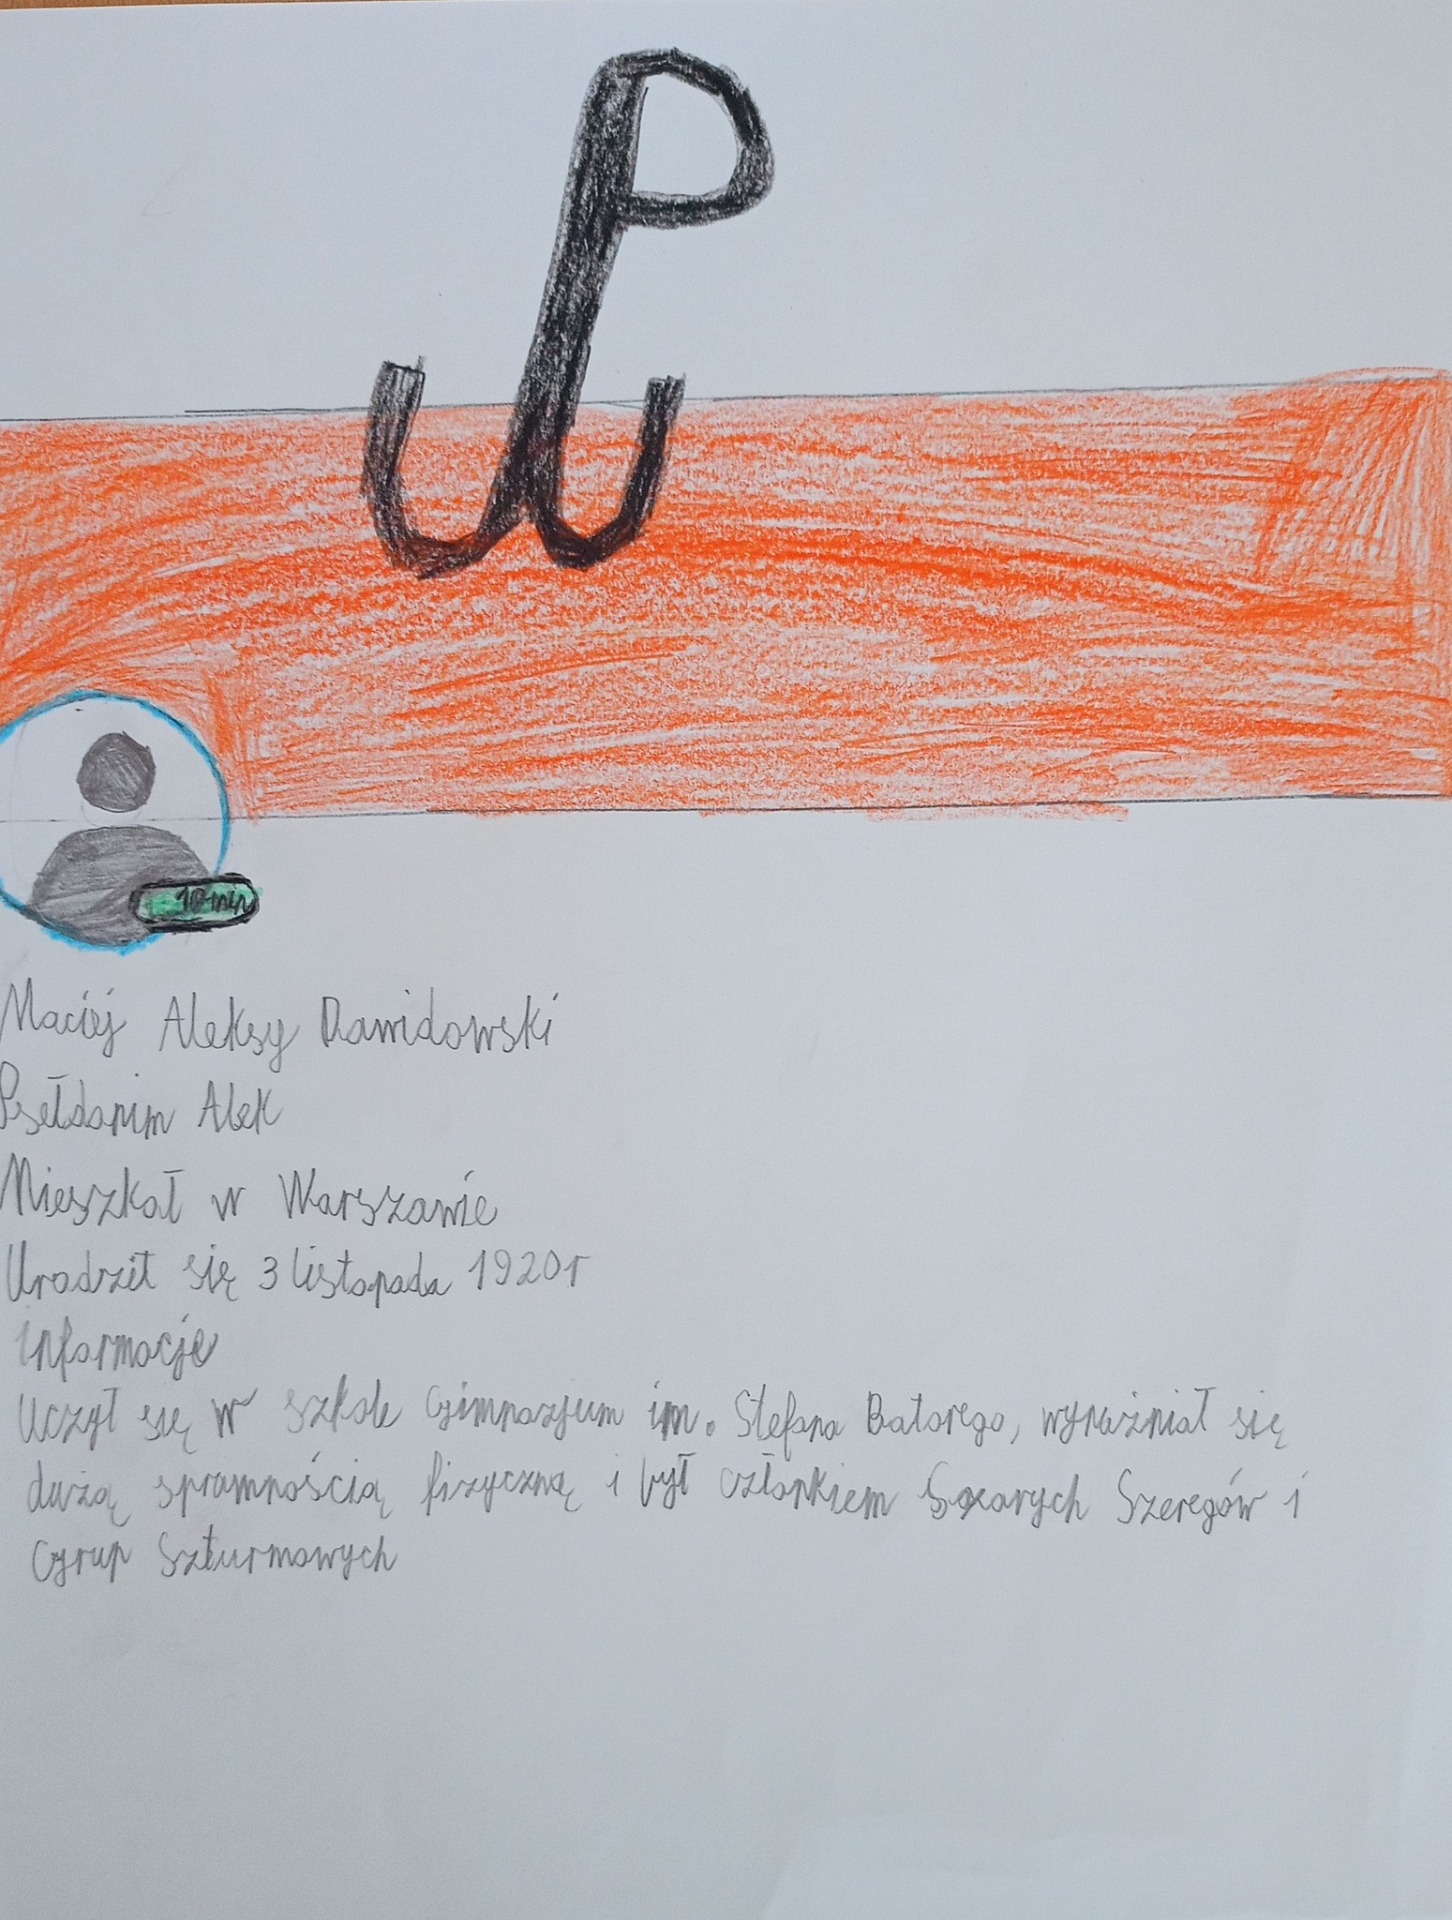 10 min
Maciej Aleksy Dawidowski
Psełdonim Alek
Mieszkał w Warszawie
Urodził się 3 listopada 1920r
informacje
Uczył się w szkole Gimnazjum im. Stefana Batorego, wyrużniał się
dużą sprawnością fizyczną i był członkiem Szarych Szeregów i
Grup Szturmowych